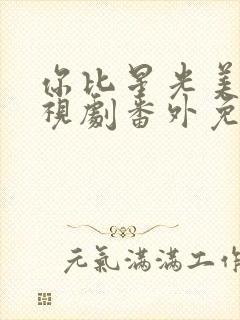 你比星光美
視劇番外免
元氣滿滿工作